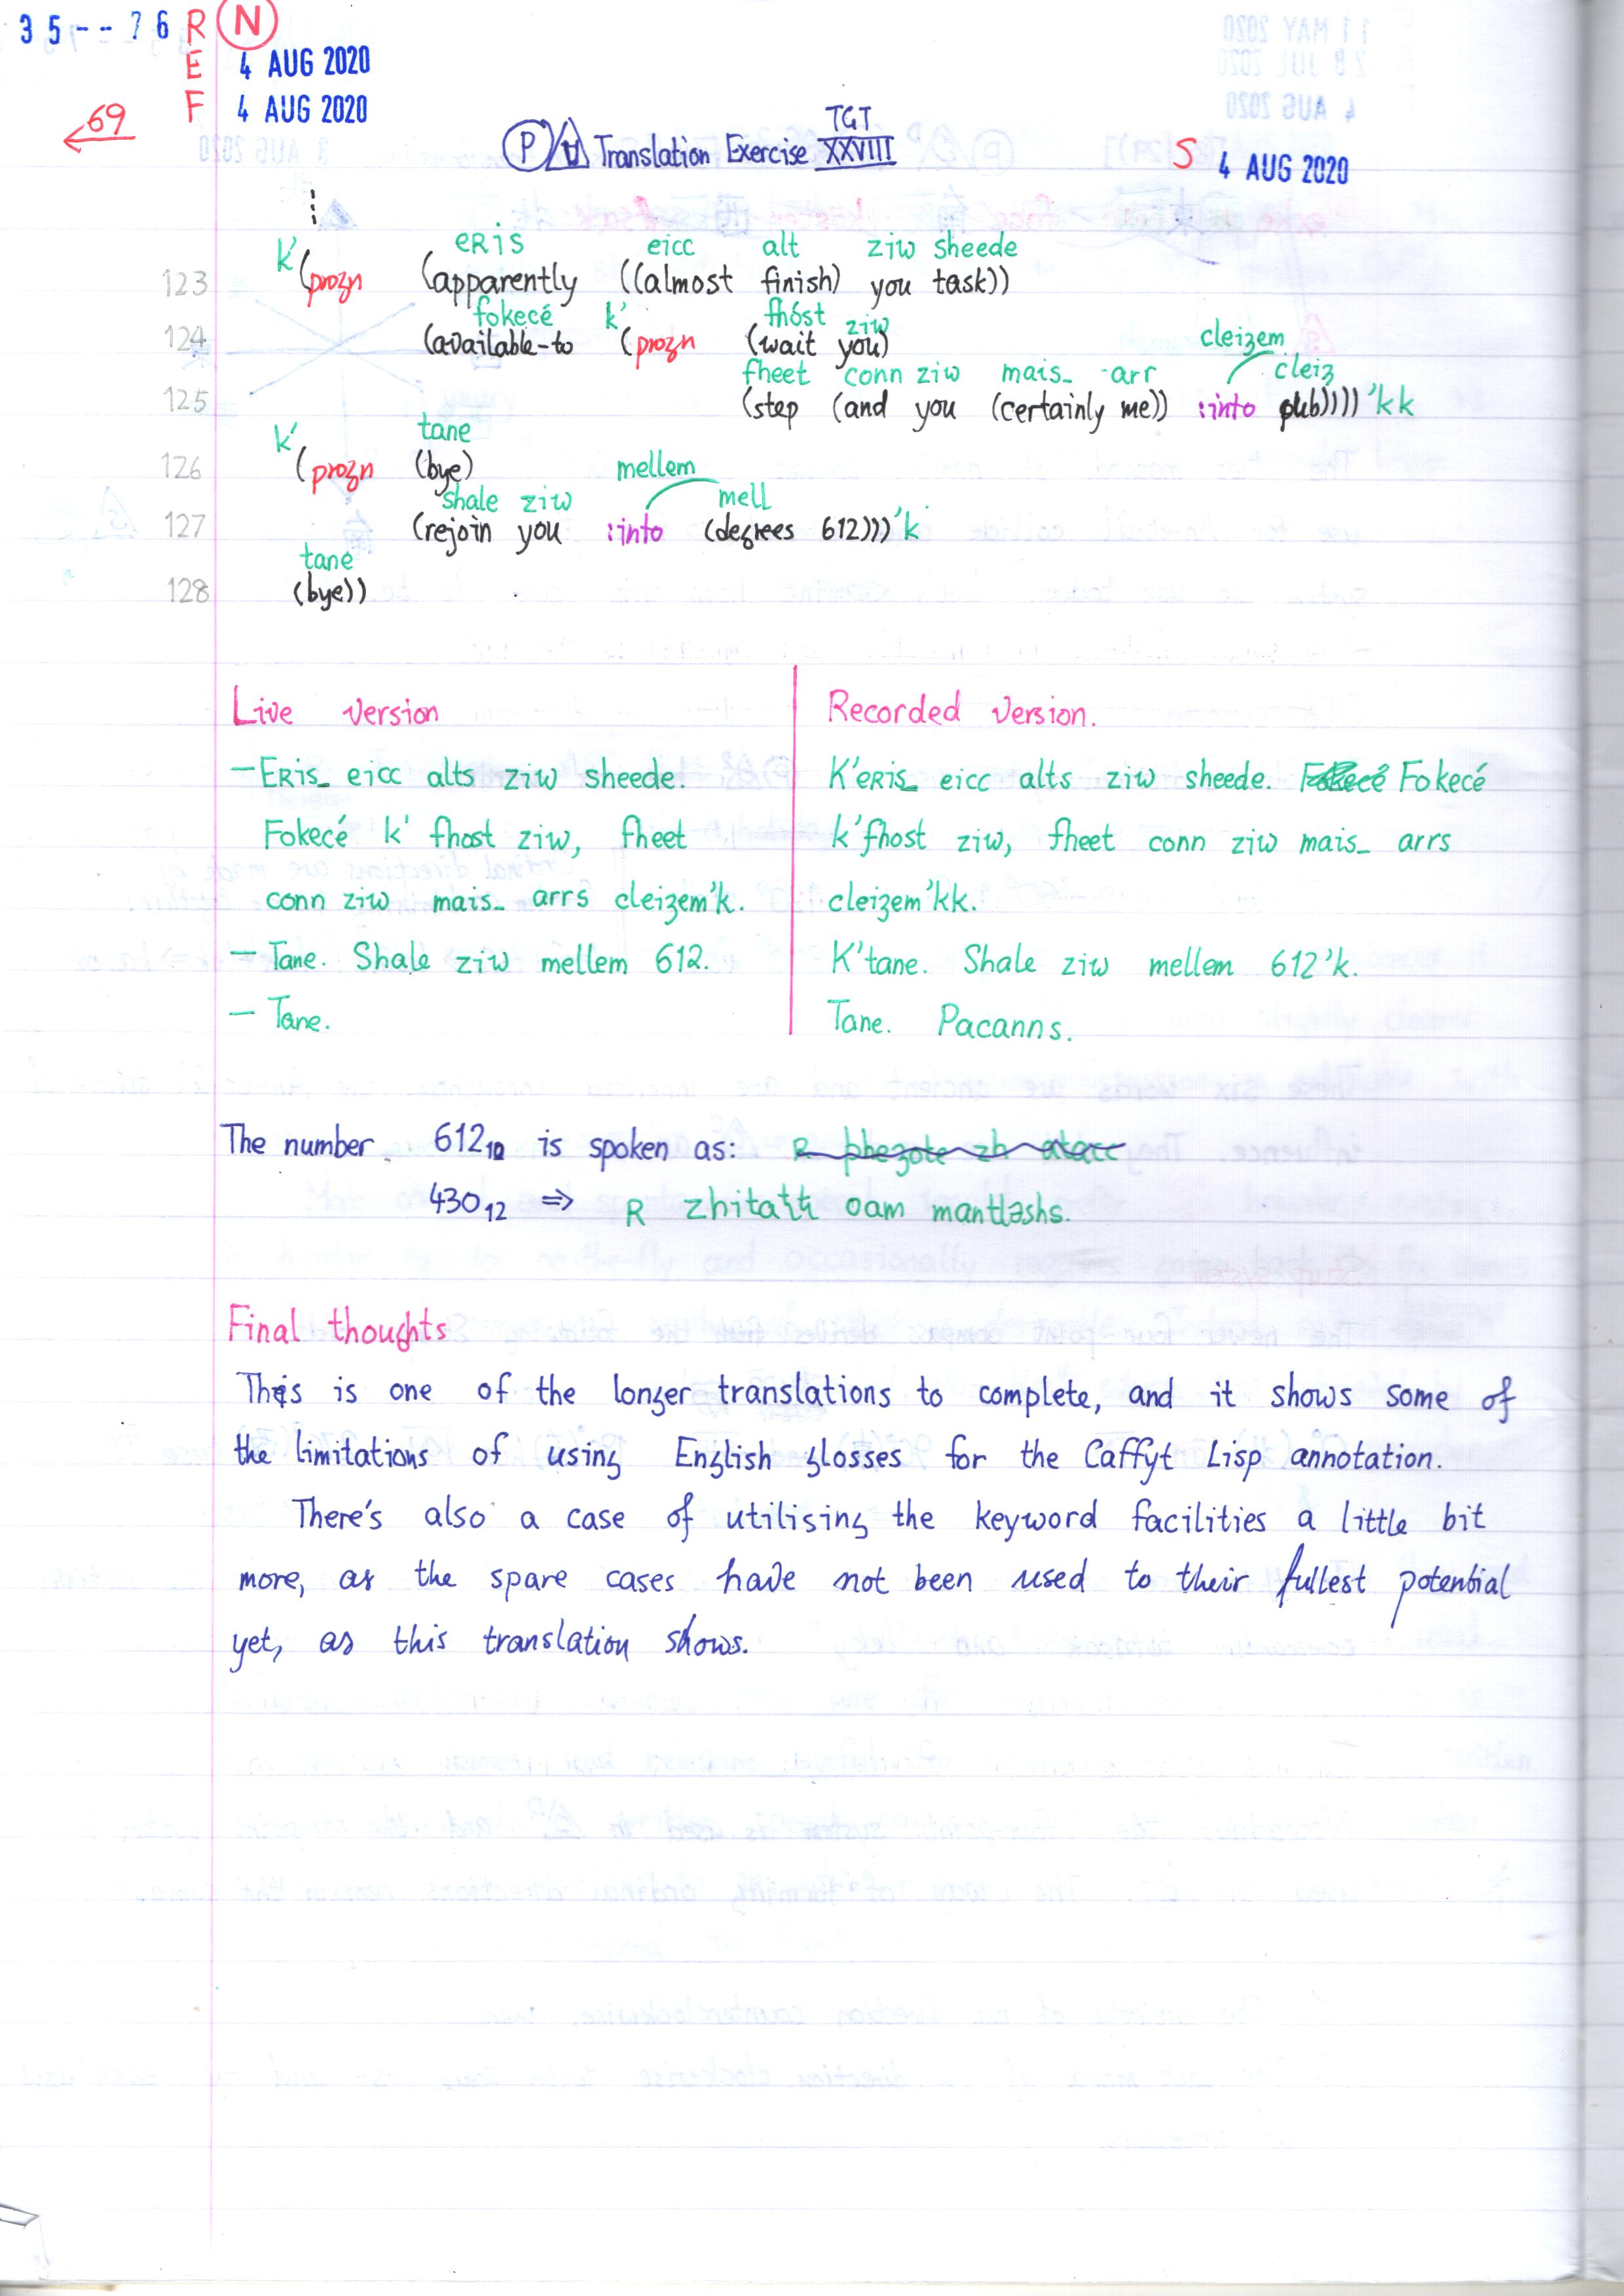 35--76 R N
E 4 AUG 2020
F 4 AUG 2020
←69
TGT
P Translation Exercise XXVIII
S 4 AUG 2020
k' eRis eicc alt ziw sheede
123 (progn (apparently ((almost finish) you task))
fokecé k' fhóst ziw
124 (available-to (progn (wait you)
cleizem
fheet conn ziw mais_ arr cleiz
125 (step (and you (certainly me)) :into pub)))) 'kk
k' tane
126 (progn (bye)
mellem
shale ziw mell
127 (rejoin you :into (degrees 612))) 'k
tane
128 (bye))
Live version
— Eris_ eicc alts ziw sheede.
Fokecé k' fhost ziw, fheet
conn ziw mais_ arrs cleizem'k.
— Tane. Shale ziw mellem 612.
— Tane.
Recorded version.
K'eRis_ eicc alts ziw sheede. Fokecé Fokecé
k'fhost ziw, fheet conn ziw mais_ arrs
cleizem'kk.
K'tane. Shale ziw mellem 612'k.
Tane. Pacanns.
The number 612₁₀ is spoken as:
430₁₂ ⇒ R zhitatt oam mantləshs.
Final thoughts
This is one of the longer translations to complete, and it shows some of
the limitations of using English glosses for the Caffyt Lisp annotation.
There's also a case of utilising the keyword facilities a little bit
more, as the spare cases have not been used to their fullest potential
yet, as this translation shows.